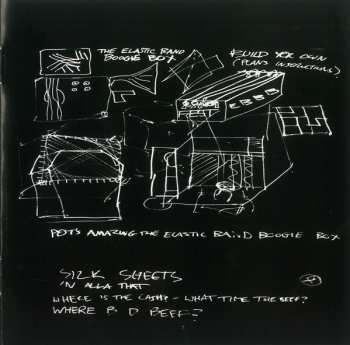 THE ELASTIC BAND
BOOGIE BOX
BUILD YR OWN
(PLANS INSTRUCTIONS)
POTS AMAZING THE ELASTIC BAND BOOGIE BOX
SILK SHEETS
'N ALLA THAT
WHERE IS THE CASH? - WHAT TIME THE BEEF?
WHERE B D BEEF?